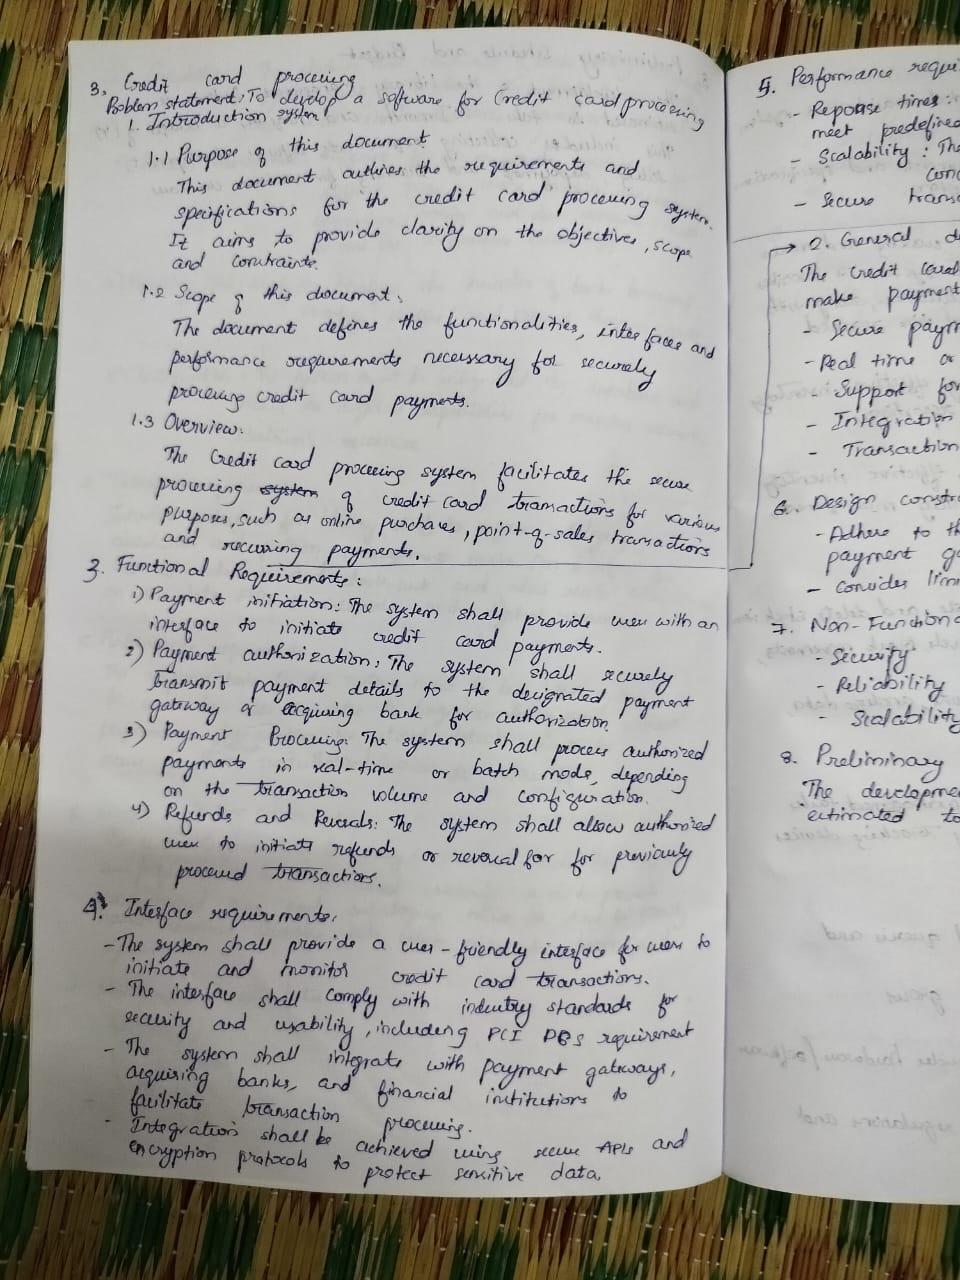 3. Credit card processing
Problem statement: To develop a software for Credit card processing
1. Introduction system
1.1 Purpose of this document
This document outlines the requirements and
specifications for the credit card processing system.
It aims to provide clarity on the objectives, scope
and constraints.
1.2 Scope of this document.
The document defines the functionalities, interfaces and
performance requirements necessary for securely
processing credit card payments.
1.3 Overview:
The Credit card processing system facilitates the secure
processing system of credit card transactions for various
purposes, such as online purchases, point-of-sales transactions
and recurring payments.
3. Functional Requirements:
1) Payment initiation: The system shall provide users with an
interface to initiate credit card payments.
2) Payment authorization: The system shall securely
transmit payment details to the designated payment
gateway or acquiring bank for authorization.
3) Payment Processing: The system shall process authorized
payments in real-time or batch mode, depending
on the transaction volume and configuration.
4) Refunds and Reversals: The system shall allow authorized
users to initiate refunds or reversal for for previously
processed transactions.
4. Interface requirements:
- The system shall provide a user-friendly interface for users to
initiate and monitor credit card transactions.
- The interface shall comply with industry standards for
security and usability, including PCI DBS requirement
- The system shall integrate with payment gateways,
acquiring banks, and financial institutions to
facilitate transaction processing.
- Integration shall be achieved using secure APIs and
encryption protocols to protect sensitive data.
5. Performance requi
- Reponse times:
meet predefined
- Scalability: The
conc
- Secure transa
2. General d
The credit card
make payment
- Secure paym
- Real time or
- Support for
- Integration
- Transaction
6. Design constra
- Adhere to th
payment ga
- Consider limi
7. Non-Functiona
- Security
- Reliability
- Scalability
8. Preliminary
The developme
estimated to